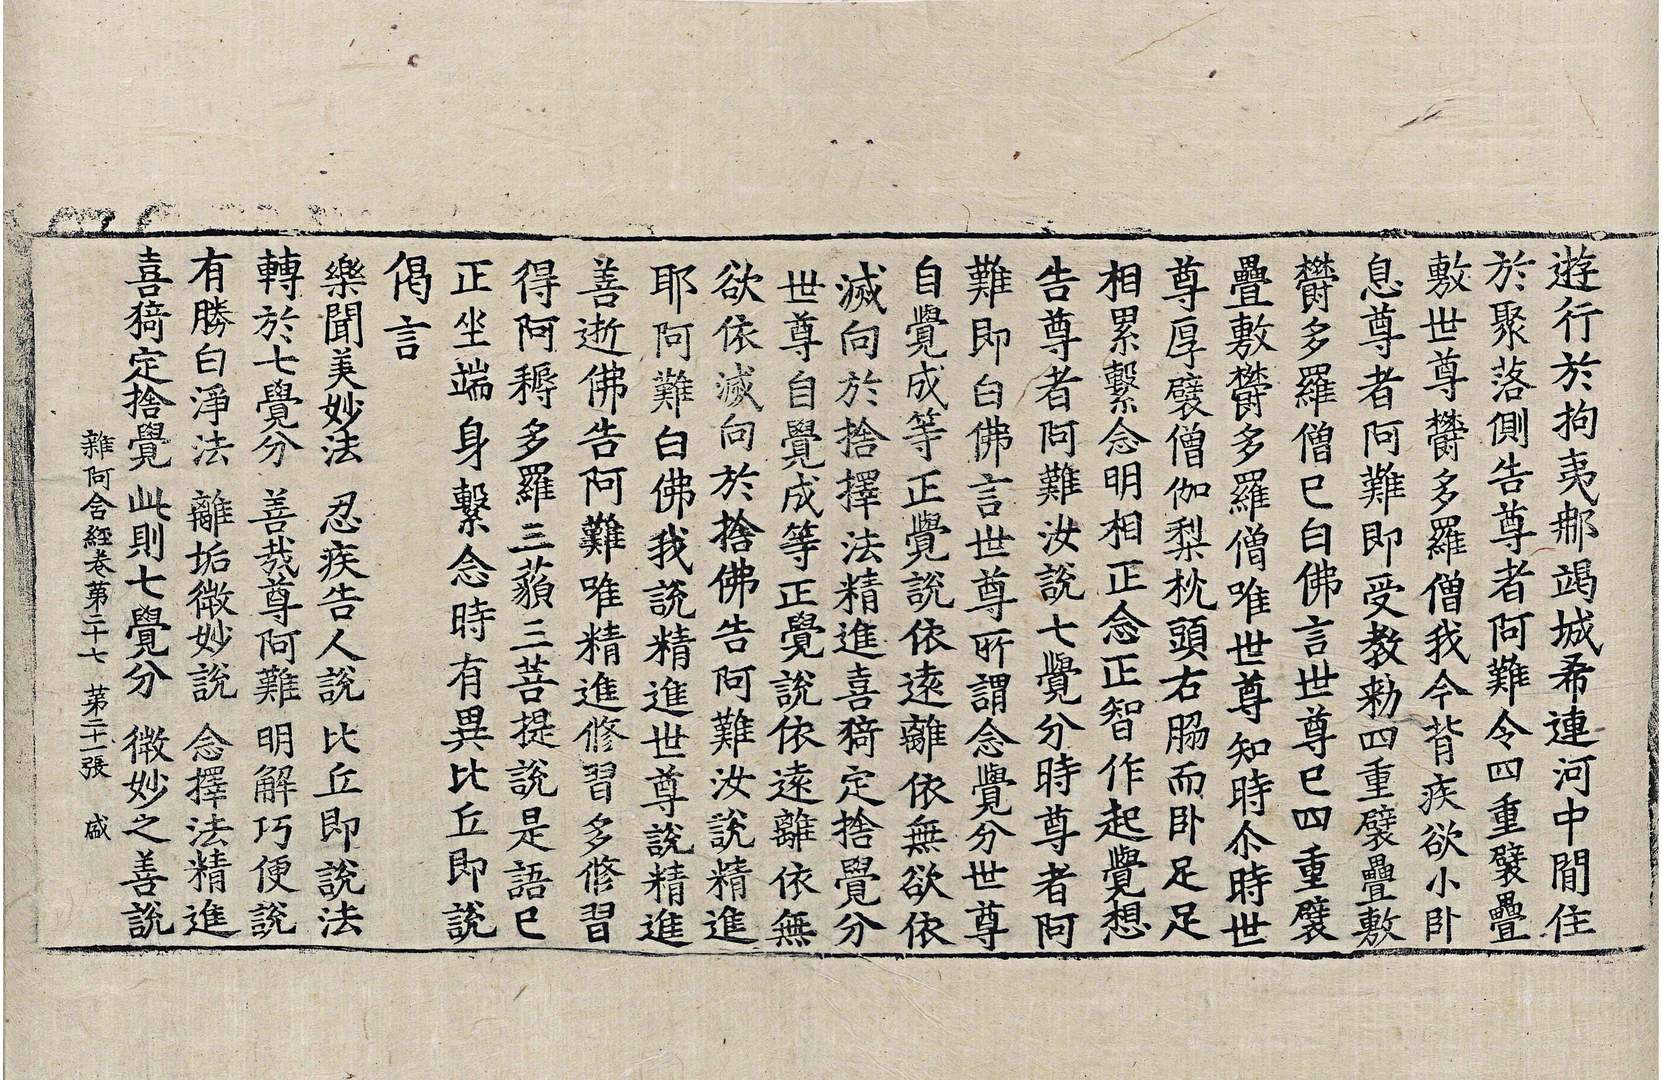 遊行於拘夷那竭城希連河中閒住
於聚落側告尊者阿難令四重襞疊
敷世尊欝多羅僧我今背疾欲小卧
息尊者阿難即受教勑四重襞疊敷
欝多羅僧已白佛言世尊已四重襞
疊敷欝多羅僧唯世尊知時尒時世
尊厚襞僧伽梨枕頭右脇而卧足足
相累繫念明相正念正智作起覺想
告尊者阿難汝說七覺分時尊者阿
難即白佛言世尊所謂念覺分世尊
自覺成等正覺說依遠離依無欲依
滅向於捨擇法精進喜猗定捨覺分
世尊自覺成等正覺說依遠離依無
欲依滅向於捨佛告阿難汝說精進
耶阿難白佛我說精進世尊說精進
善逝佛告阿難唯精進修習多修習
得阿耨多羅三藐三菩提說是語已
正坐端身繫念時有異比丘即說
偈言
樂聞美妙法 忍疾告人說 比丘即說法
轉於七覺分 善哉尊阿難 明解巧便說
有勝白淨法 離垢微妙說 念擇法精進
喜猗定捨覺 此則七覺分 微妙之善說
雜阿含經卷第二十七 第二十一張 盛